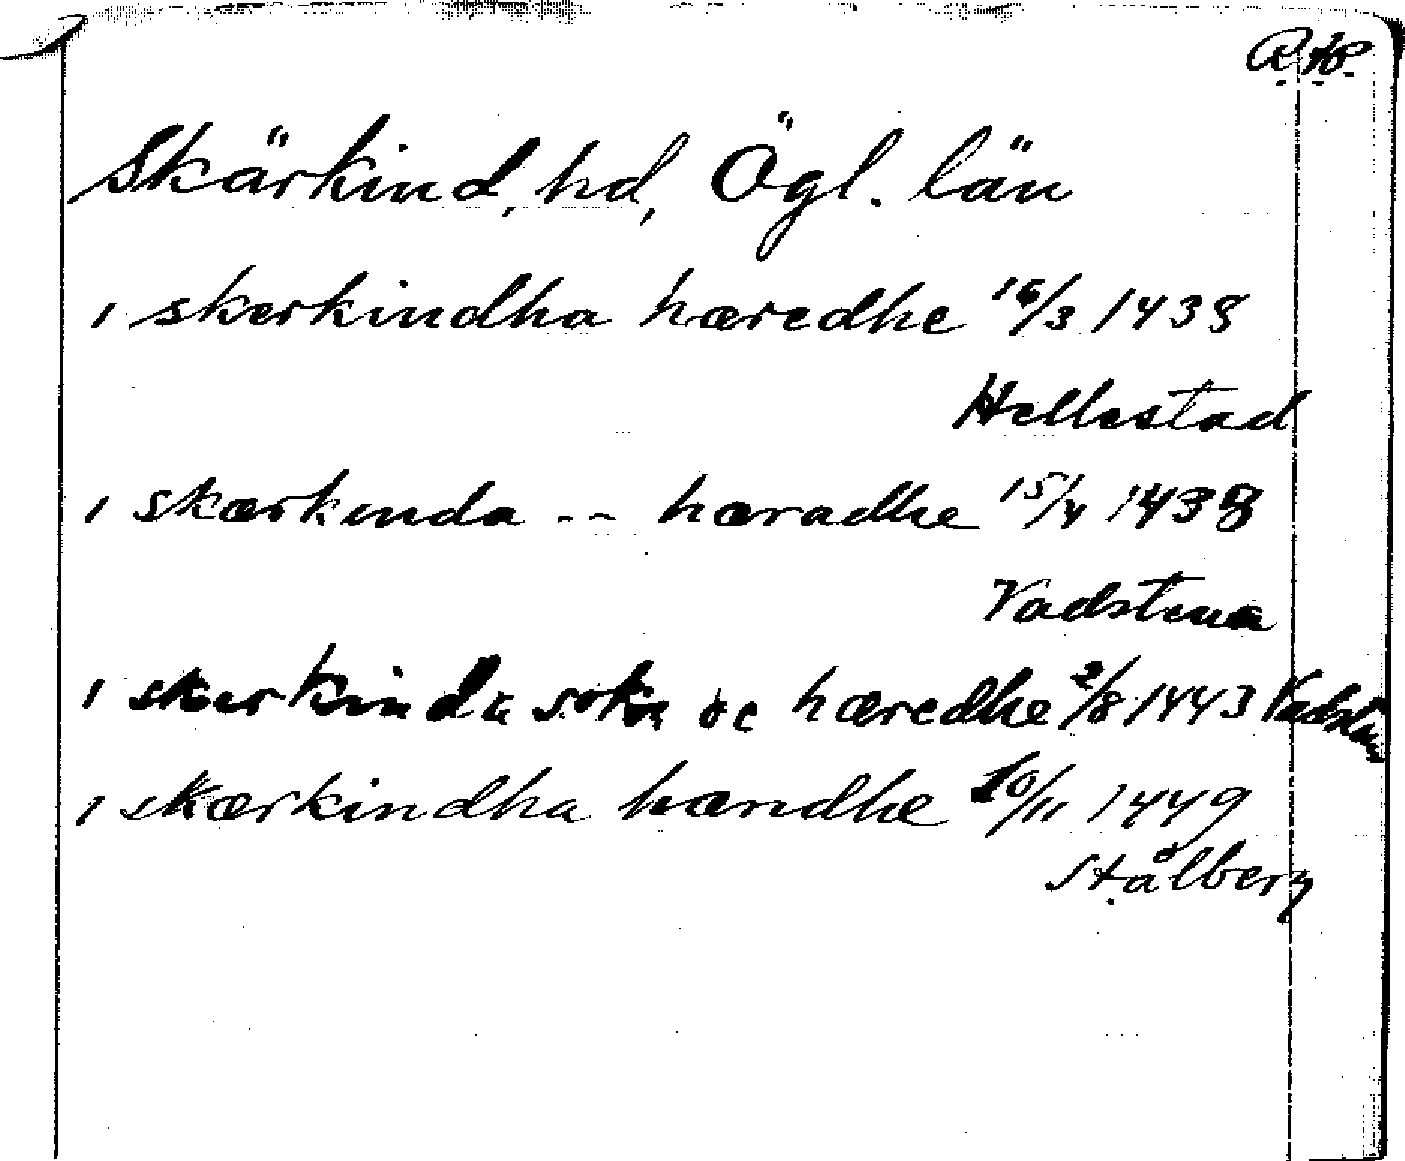 R. Ap.
Skärkind, hd, Ögl. län
i skerkindha hæredhe 16/3 1438
Hellestad
i skærkinda -- hæradhe 15/4 1438
Vadstena
i skerkinda sokn oc hæredhe 2/8 1443 Vadstena
i skærkindha hændhe 10/11 1449
Stålberg